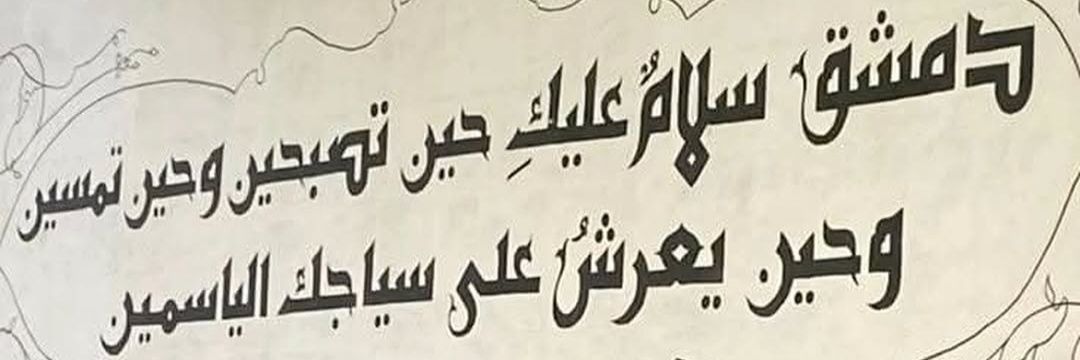 دمشق سلامٌ عليكِ حين تصبحين وحين تمسين
وحين يعرشُ على سياجك الياسمين